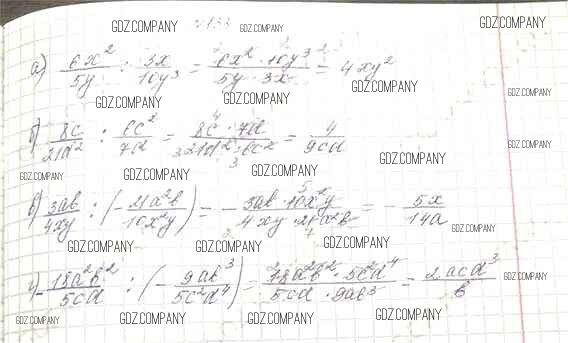 №133
GDZ.COMPANY GDZ.COMPANY GDZ.COMPANY
а) 6x²/5y : 3x/10y³ = 6x² · 10y³/5y · 3x = 4xy²
GDZ.COMPANY GDZ.COMPANY GDZ.COMPANY
б) 8c/21d² : 6c²/7d = 8c · 7d/21d² · 6c² = 4/9cd
GDZ.COMPANY GDZ.COMPANY GDZ.COMPANY GDZ.COMPANY
в) 3ab/4xy : (- 21a²b/10x²y) = - 3ab · 10x²y/4xy · 21a²b = - 5x/14a
GDZ.COMPANY GDZ.COMPANY GDZ.COMPANY
г) - 18a²b²/5cd : (- 9ab³/5c²d⁴) = 18a²b² · 5c²d⁴/5cd · 9ab³ = 2acd³/b
GDZ.COMPANY GDZ.COMPANY GDZ.COMPANY GDZ.COMPANY GDZ.COMPANY
GDZ.COMPANY